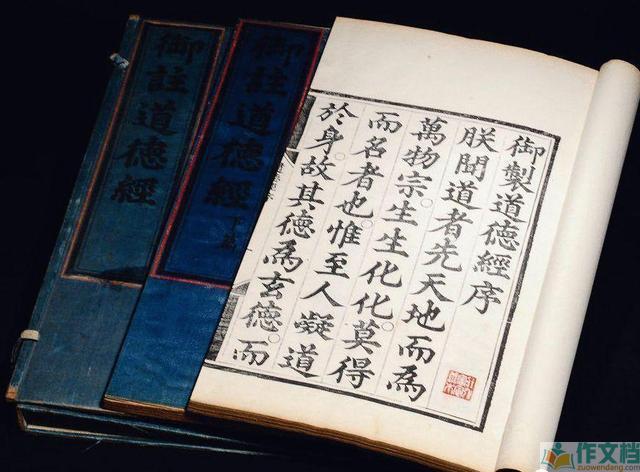 御註道德經
御註道德經
下篇
御製道德經序
朕聞道者先天地而為
萬物宗生生化化莫得
而名者也惟至人凝道
於身故其德為玄德而
作文档
zuowendang.com